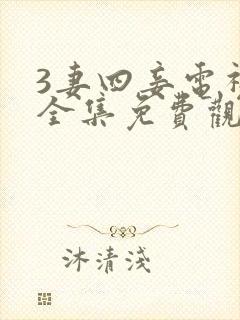 3妻四妾電視
全集免費觀
沐清淺